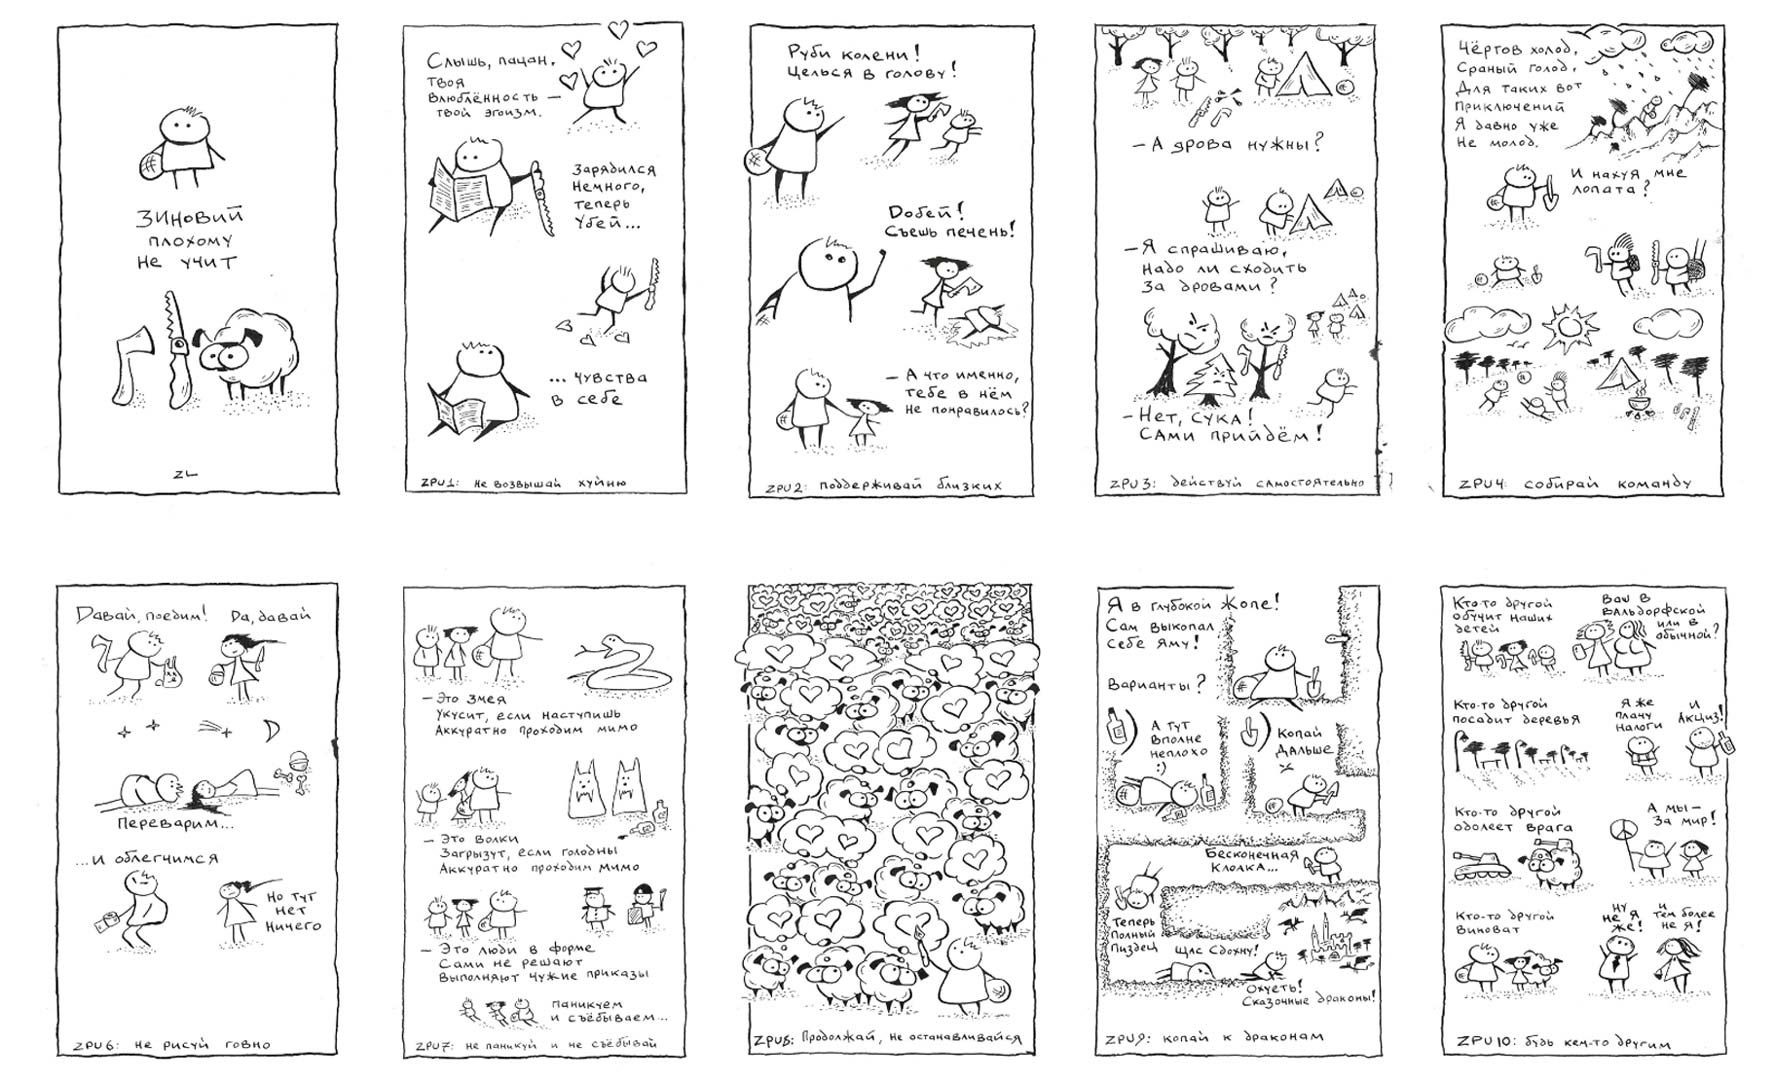 Зиновий
плохому
не учит
ZL
Слышь, пацан,
твоя
влюблённость —
твой эгоизм.
Зарядился
немного,
теперь
убей...
... чувства
в себе
ZPU1: не возвышай хуйню
Руби колени!
Целься в голову!
Добей!
Съешь печень!
— А что именно,
тебе в нём
не понравилось?
ZPU2: поддерживай близких
— А дрова нужны?
— Я спрашиваю,
надо ли сходить
за дровами?
— Нет, сука!
Сами прийдём!
ZPU3: действуй самостоятельно
Чёртов холод,
Сраный голод,
Для таких вот
приключений
Я давно уже
не молод.
И нахуя мне
лопата?
ZPU4: собирай команду
Давай, поедим! Да, давай
Переварим...
...и облегчимся
Но тут
нет
ничего
ZPU6: не рисуй говно
— Это змея
Укусит, если наступишь
Аккуратно проходим мимо
— Это волки
Загрызут, если голодны
Аккуратно проходим мимо
— Это люди в форме
Сами не решают
Выполняют чужие приказы
паникуем
и съёбываем...
ZPU7: не паникуй и не съёбывай
ZPU8: Продолжай, не останавливайся
Я в глубокой жопе!
Сам выкопал
себе яму!
Варианты?
А тут
вполне
неплохо
:)
Копай
дальше
Бесконечная
клоака...
Теперь
полный
пиздец
Щас сдохну!
Охуеть!
Сказочные драконы!
ZPU9: копай к драконам
Кто-то другой
обучит наших
детей
Ваш в
вальдорфской
или в
обычной?
Кто-то другой
посадит деревья
Я же
плачу
налоги
И
акциз!
Кто-то другой
одолеет врага
А мы —
за мир!
Кто-то другой
виноват
ну
не я
же!
и
тем более
не я!
ZPU10: будь кем-то другим